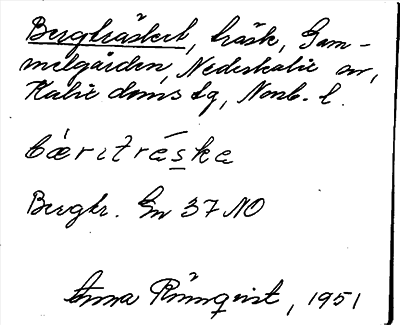 Bergträsket, träsk, Gam-
melgården, Nederkalix sn,
Kalix doms lg, Norrb. l.
bæ̀rıtrá s̲ka
Bergtr. Gn 37 NO
Anna Rönnqvist, 1951